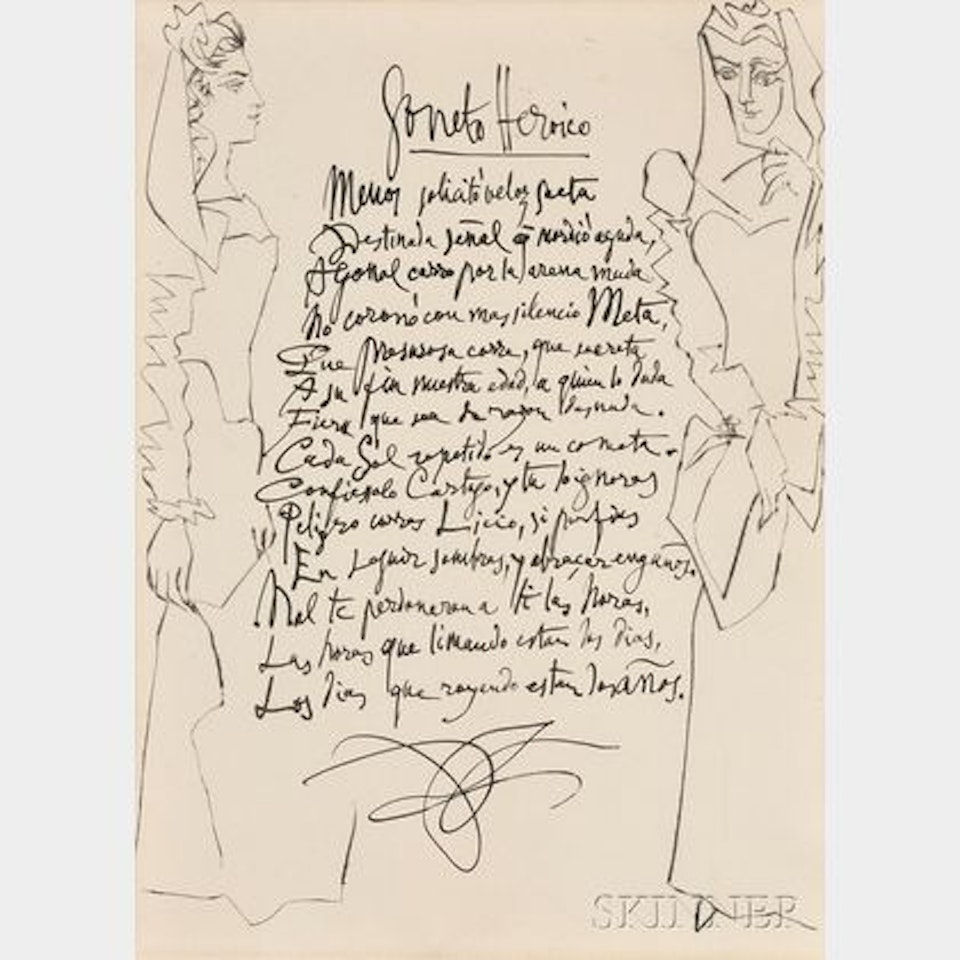 Soneto Heroico
Menos solicitó veloz saeta
Destinada señal q̃ mordió aguda,
Agonal carro por la arena muda
No coronó con mas silencio Meta,
Que Presurosa corre, que secreta
A su fin nuestra edad, a quien lo duda
Fiera que sea de razon desnuda.
Cada Sol repetido es un cometa.
Confiesalo Cartago, y tu lo ignoras
Peligro corres Licio, si porfias
En seguir sombras, y abraçar engaños.
Mal te perdonaran a ti las horas,
Las horas que limando estan los dias,
Los dias que royendo estan los años.
SKINNER